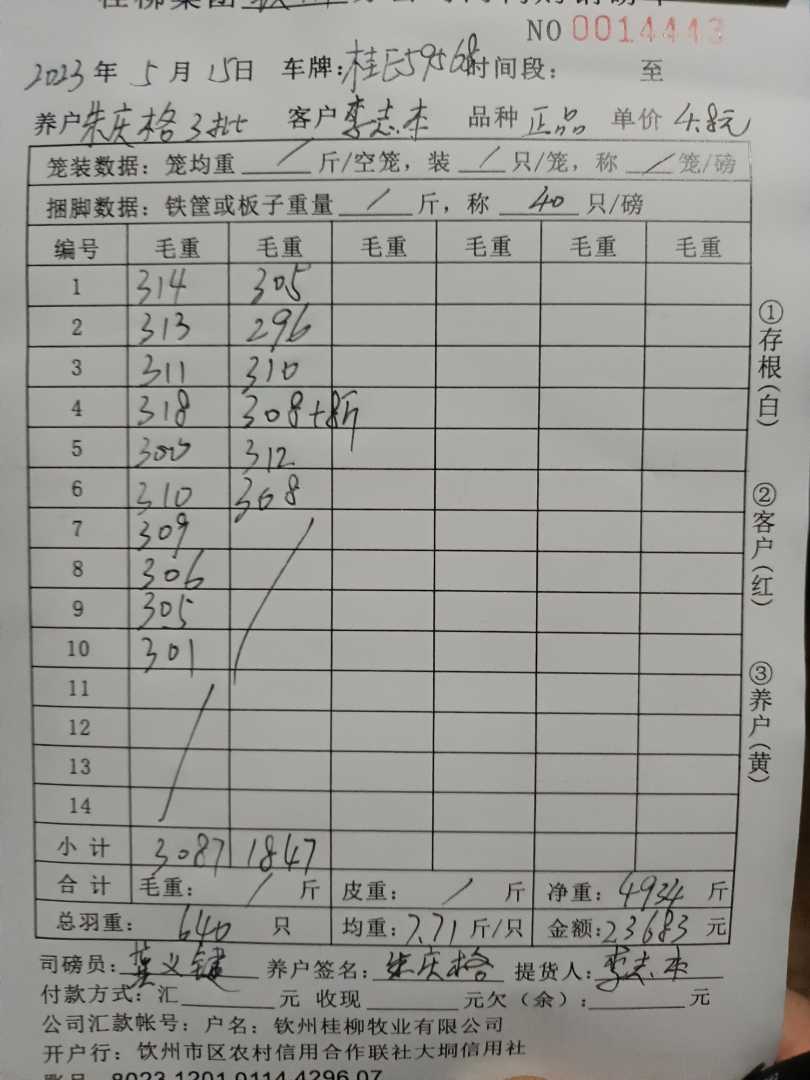 桂柳集团
NO 0014443
2023年 5月 15日 车牌:桂E59568 时间段: 至
养户 朱庆格3批 客户 李志杰 品种 正品 单价 4.8元
笼装数据: 笼均重 / 斤/空笼, 装 / 只/笼, 称 / 笼/磅
捆脚数据: 铁筐或板子重量 / 斤, 称 40 只/磅
编号 毛重 毛重 毛重 毛重 毛重 毛重
1 314 305
2 313 296
3 311 310
4 318 308+8斤
5 300 312
6 310 308
7 309
8 306
9 305
10 301
11
12
13
14
小计 3087 1847
合计 毛重: / 斤 皮重: / 斤 净重: 4934 斤
总羽重: 640 只 均重: 7.71 斤/只 金额: 23683 元
司磅员: 龚义键 养户签名: 朱庆格 提货人: 李志杰
付款方式: 汇 元 收现 元欠(余): 元
公司汇款帐号: 户名: 钦州桂柳牧业有限公司
开户行: 钦州市区农村信用合作联社大垌信用社
8023 1201 0114 4296 07
①存根(白)
②客户(红)
③养户(黄)